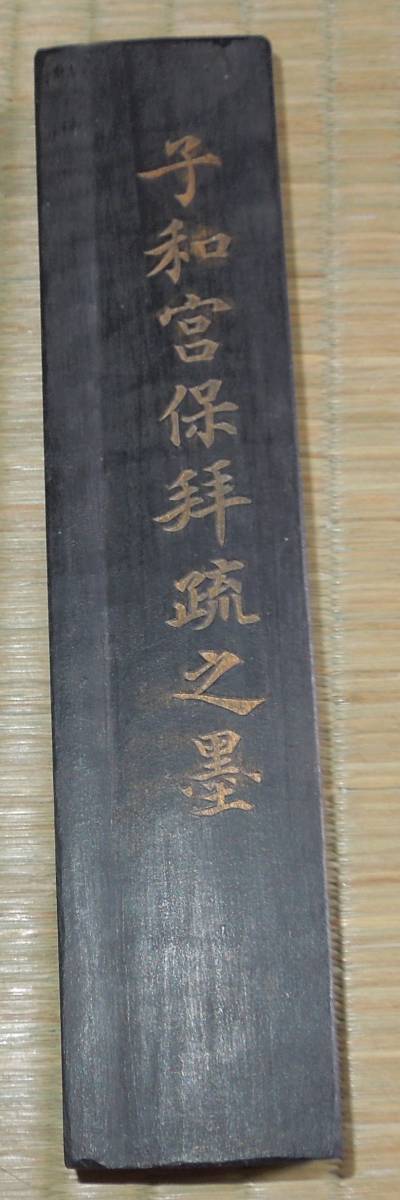 子和宮保拜疏之墨